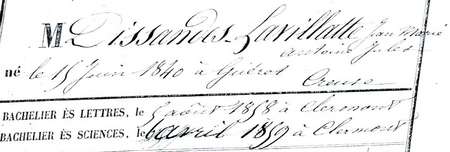 M. Dissandes-Lavillatte Jean Marie
Antoine Jules
né le 15 Juin 1840 à Guéret
Creuse
BACHELIER ÈS LETTRES, le 5 août 1858 à Clermont
BACHELIER ÈS SCIENCES, le 6 avril 1859 à Clermont